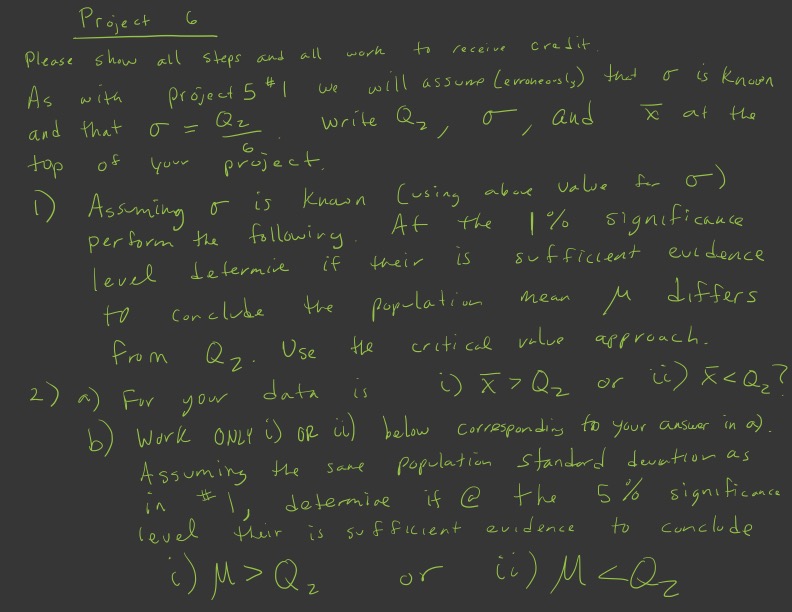 Project 6
Please show all steps and all work to receive credit.
As with project 5 #1 we will assume (erroneously) that σ is known
and that σ = Q₂/6. Write Q₂, σ, and x̄ at the
top of your project.
1) Assuming σ is known (using above value for σ)
perform the following. At the 1% significance
level determine if their is sufficient evidence
to conclude the population mean μ differs
from Q₂. Use the critical value approach.
2) a) For your data is i) x̄ > Q₂ or ii) x̄ < Q₂?
b) Work ONLY i) OR ii) below corresponding to your answer in a).
Assuming the same population standard deviation as
in #1, determine if @ the 5% significance
level their is sufficient evidence to conclude
i) μ > Q₂ or ii) μ < Q₂